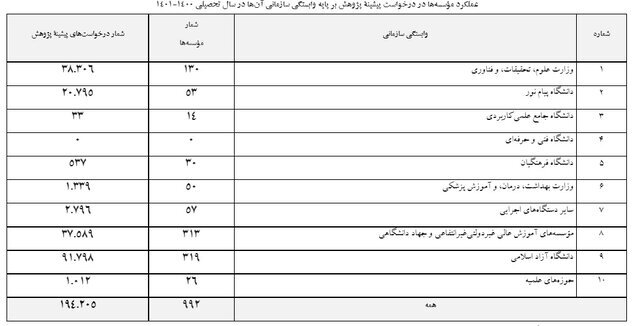 عملکرد مؤسسه‌ها در درخواست پیشینهٔ پژوهش بر پایه وابستگی سازمانی آن‌ها در سال تحصیلی ۱۴۰۰-۱۴۰۱
شماره وابستگی سازمانی شمار مؤسسه‌ها شمار درخواست‌های پیشینهٔ پژوهش
۱ وزارت علوم، تحقیقات، و فناوری ۱۳۰ ۳۸.۳۰۶
۲ دانشگاه پیام نور ۵۳ ۲۰.۷۹۵
۳ دانشگاه جامع علمی‌کاربردی ۱۴ ۳۳
۴ دانشگاه فنی و حرفه‌ای ۰ ۰
۵ دانشگاه فرهنگیان ۳۰ ۵۳۷
۶ وزارت بهداشت، درمان، و آموزش پزشکی ۵۰ ۱.۳۳۹
۷ سایر دستگاه‌های اجرایی ۵۷ ۲.۷۹۶
۸ مؤسسه‌های آموزش عالی غیردولتی‌غیرانتفاعی و جهاد دانشگاهی ۳۱۳ ۳۷.۵۸۹
۹ دانشگاه آزاد اسلامی ۳۱۹ ۹۱.۷۹۸
۱۰ حوزه‌های علمیه ۲۶ ۱.۰۱۲
همه ۹۹۲ ۱۹٤.۲۰۵